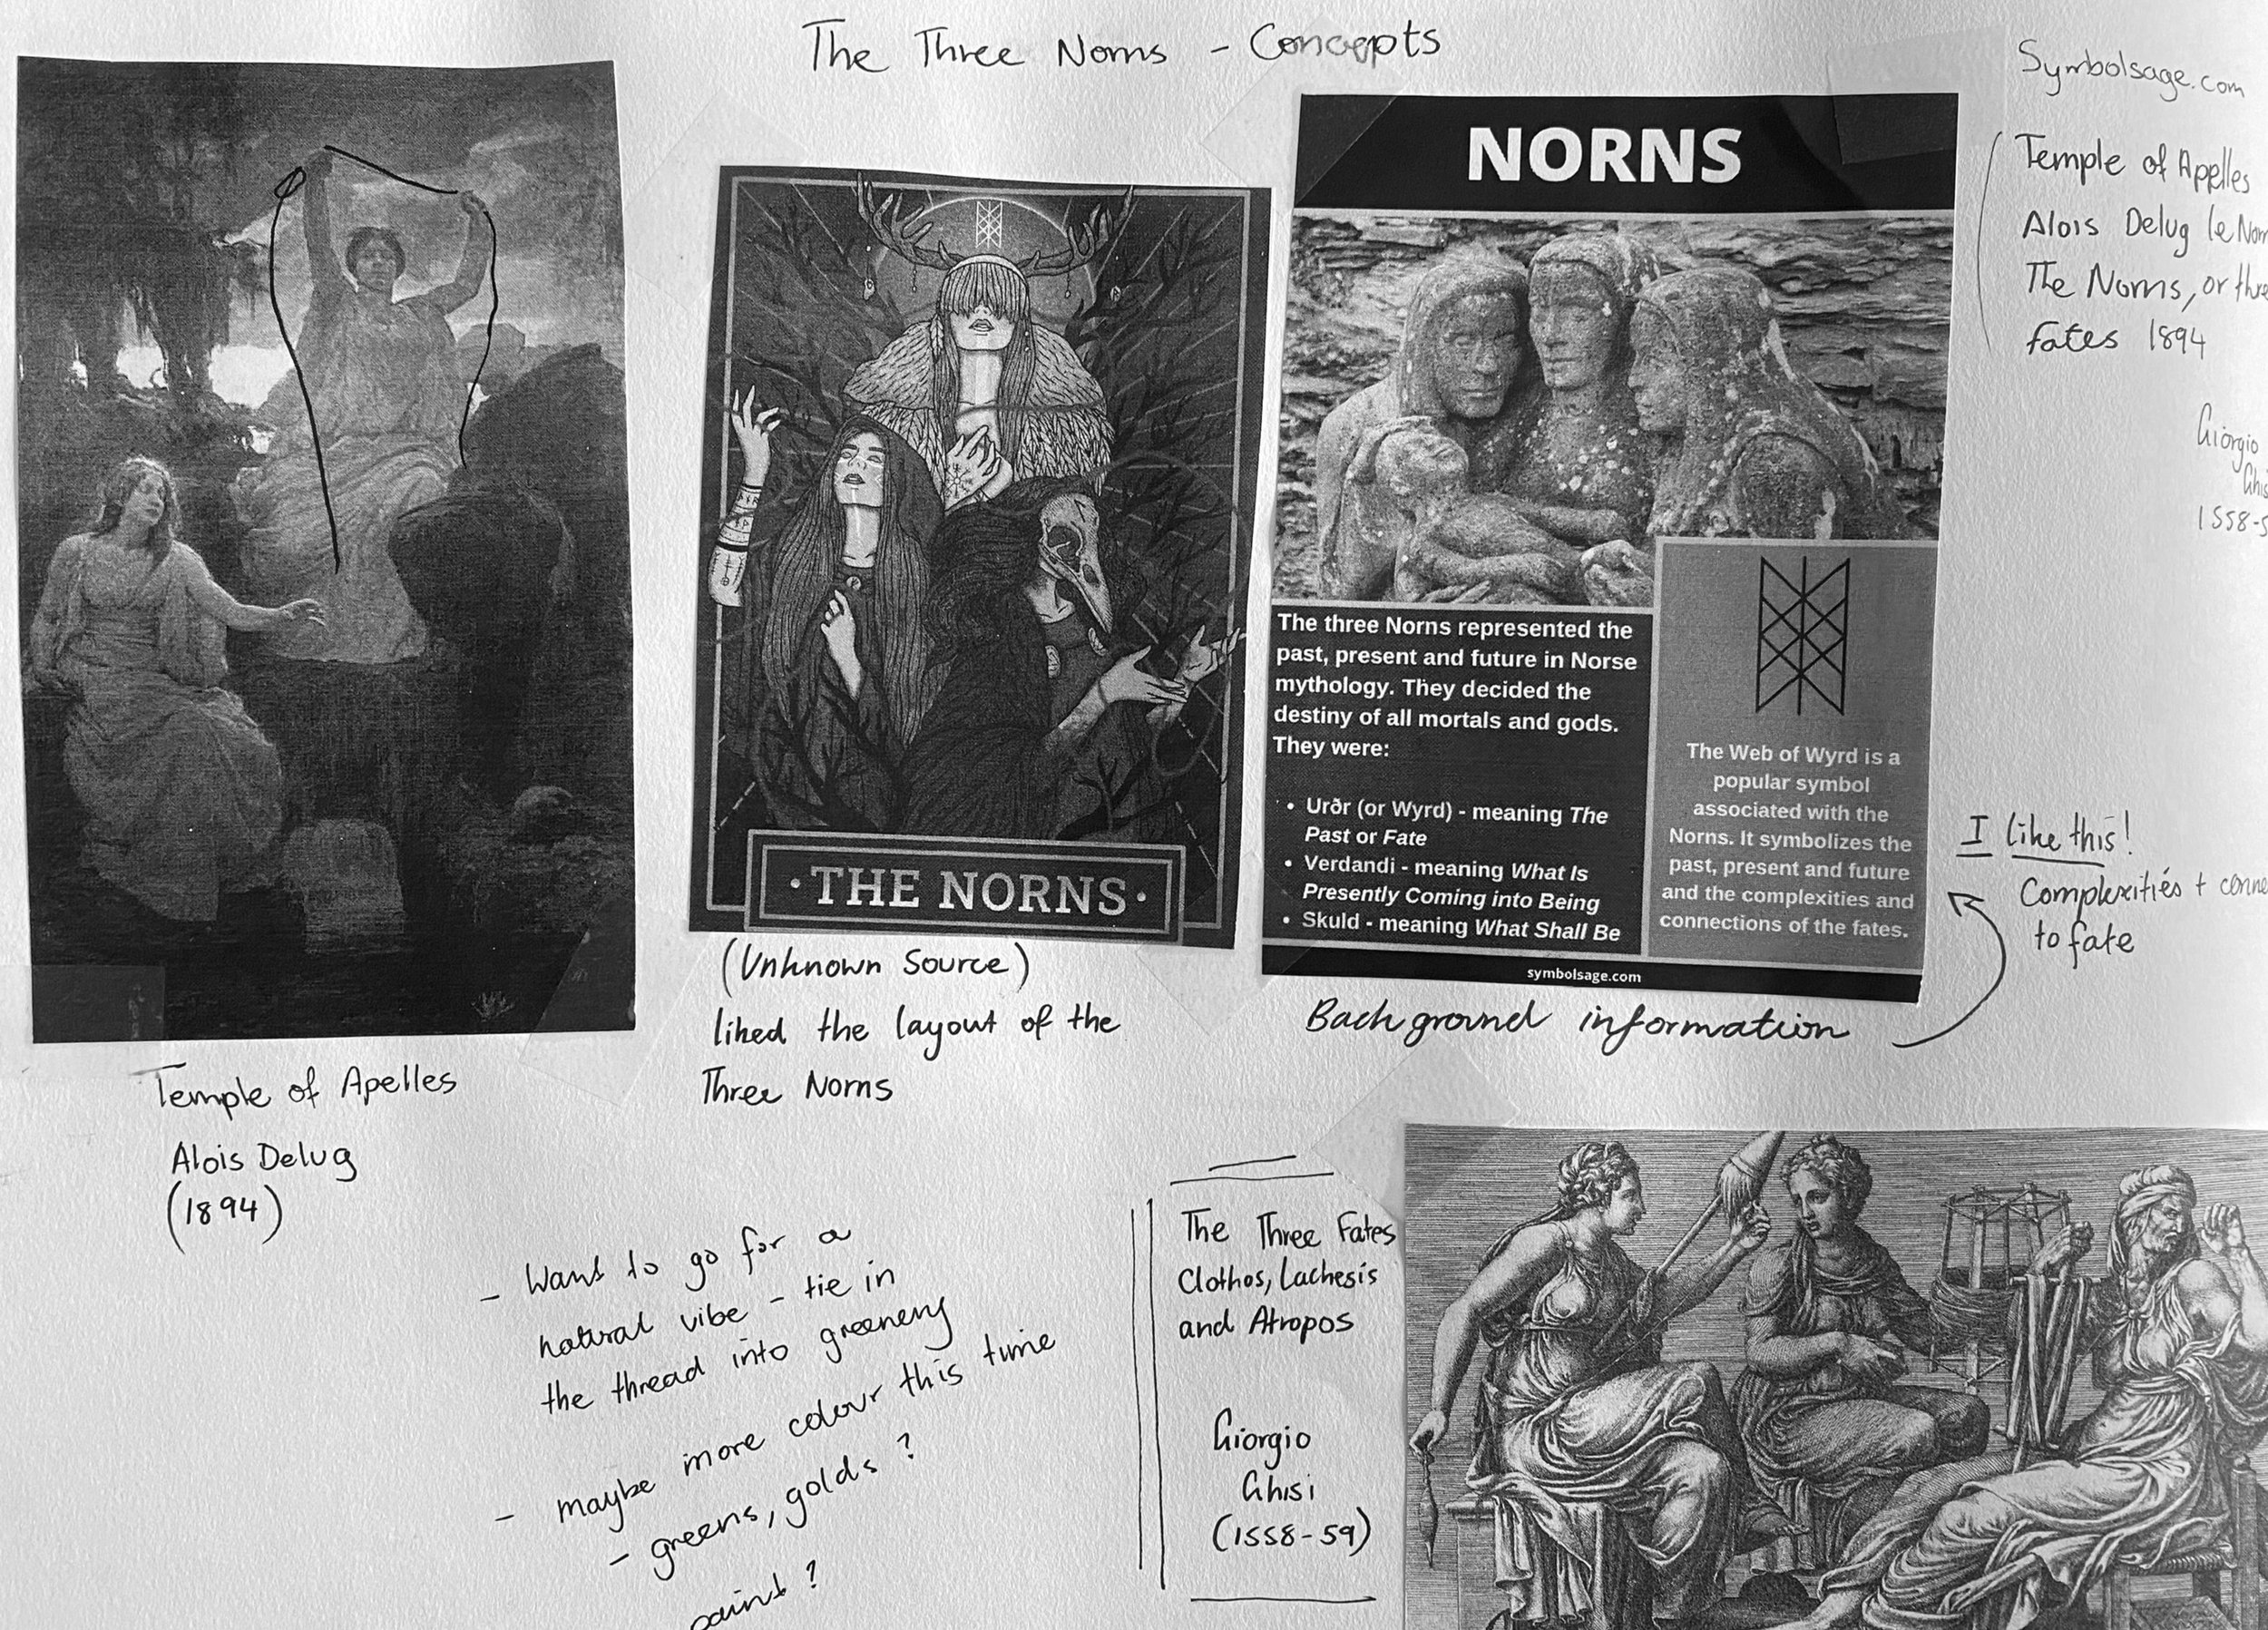 The Three Norns - Concepts
Symbolsage.com
Temple of Apelles
Alois Delug
The Norns, or
fates 1894
Giorgio
1558-5
NORNS
The three Norns represented the
past, present and future in Norse
mythology. They decided the
destiny of all mortals and gods.
They were:
• Urðr (or Wyrd) - meaning The
Past or Fate
• Verdandi - meaning What Is
Presently Coming into Being
• Skuld - meaning What Shall Be
The Web of Wyrd is a
popular symbol
associated with the
Norns. It symbolizes the
past, present and future
and the complexities and
connections of the fates.
symbolsage.com
Background information
I like this!
Complexities +
to fate
·THE NORNS·
(Unknown Source)
liked the layout of the
Three Norns
Temple of Apelles
Alois Delug
(1894)
- Want to go for a
natural vibe - tie in
the thread into greenery
- maybe more colour this time
- greens, golds?
paint?
The Three Fates
Clothos, Lachesis
and Atropos
Giorgio
Ghisi
(1558-59)